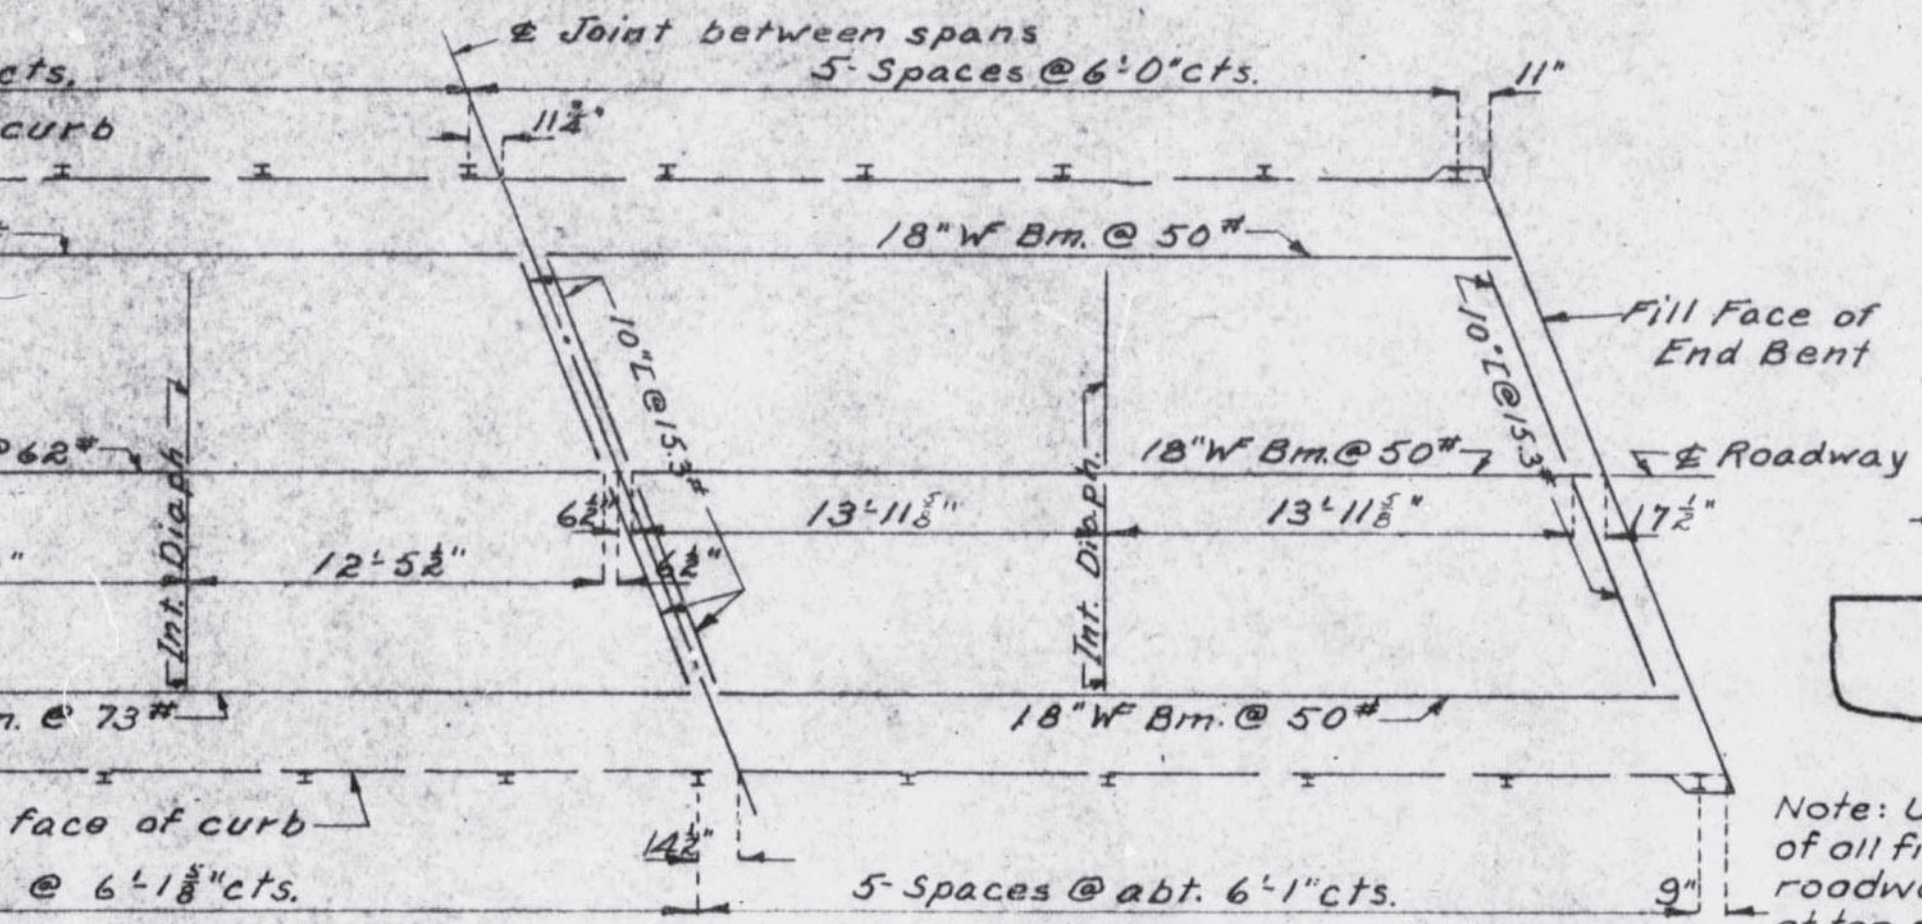 ℄ Joint between spans
cts.
5-Spaces @ 6'-0"cts.
11"
curb
11 3/4"
18" WF Bm. @ 50#
10" I @ 15.3#
10" I @ 15.3#
Fill Face of
End Bent
@ 62#
Int. Diaph.
18" WF Bm. @ 50#
℄ Roadway
6 1/2"
13'-11 5/8"
Int. Diaph.
13'-11 5/8"
17 1/2"
12'-5 1/2"
6 1/2"
m. @ 73#
18" WF Bm. @ 50#
face of curb
14 1/2"
@ 6'-1 5/8"cts.
5-Spaces @ abt. 6'-1"cts.
9"
Note: U
of all fi
roadwa